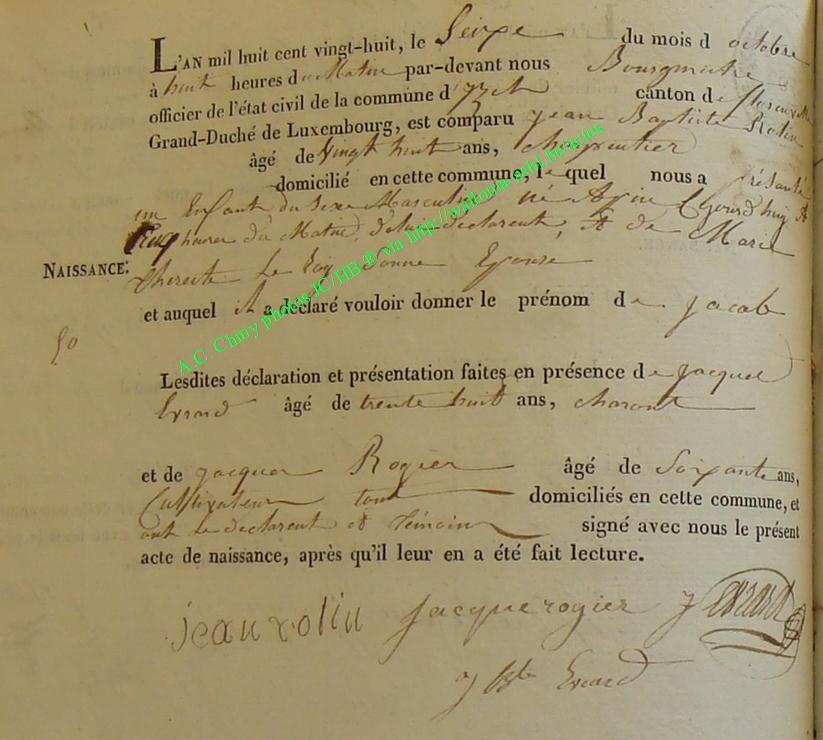 L'AN mil huit cent vingt-huit, le Seize du mois d octobre
à huit heures du Matin par-devant nous Bourgmestre
officier de l'état civil de la commune d' Izel canton de florenville
Grand-Duché de Luxembourg, est comparu jean Baptiste Rolin
âgé de vingt huit ans, charpentier
domicilié en cette commune, le quel nous a présenté
un Enfant du sexe Masculin né hui à
heures du Matin, de lui declarent, et de Marie
therese Le Roy Sonne Epouse
NAISSANCE:
et auquel il a déclaré vouloir donner le prénom de jacob
50
Lesdites déclaration et présentation faites en présence de jacques
Evrard âgé de trente huit ans, charon
et de jacques Rogier âgé de Soixante ans,
Cultivateur tous domiciliés en cette commune, et
ont le declarent et témoins signé avec nous le présent
acte de naissance, après qu'il leur en a été fait lecture.
jean rolin jacque rogier J evrard
J Bte Evrard
A.C. Chiny photos JC/HB ® via http://wallonia-asbl.be/actes